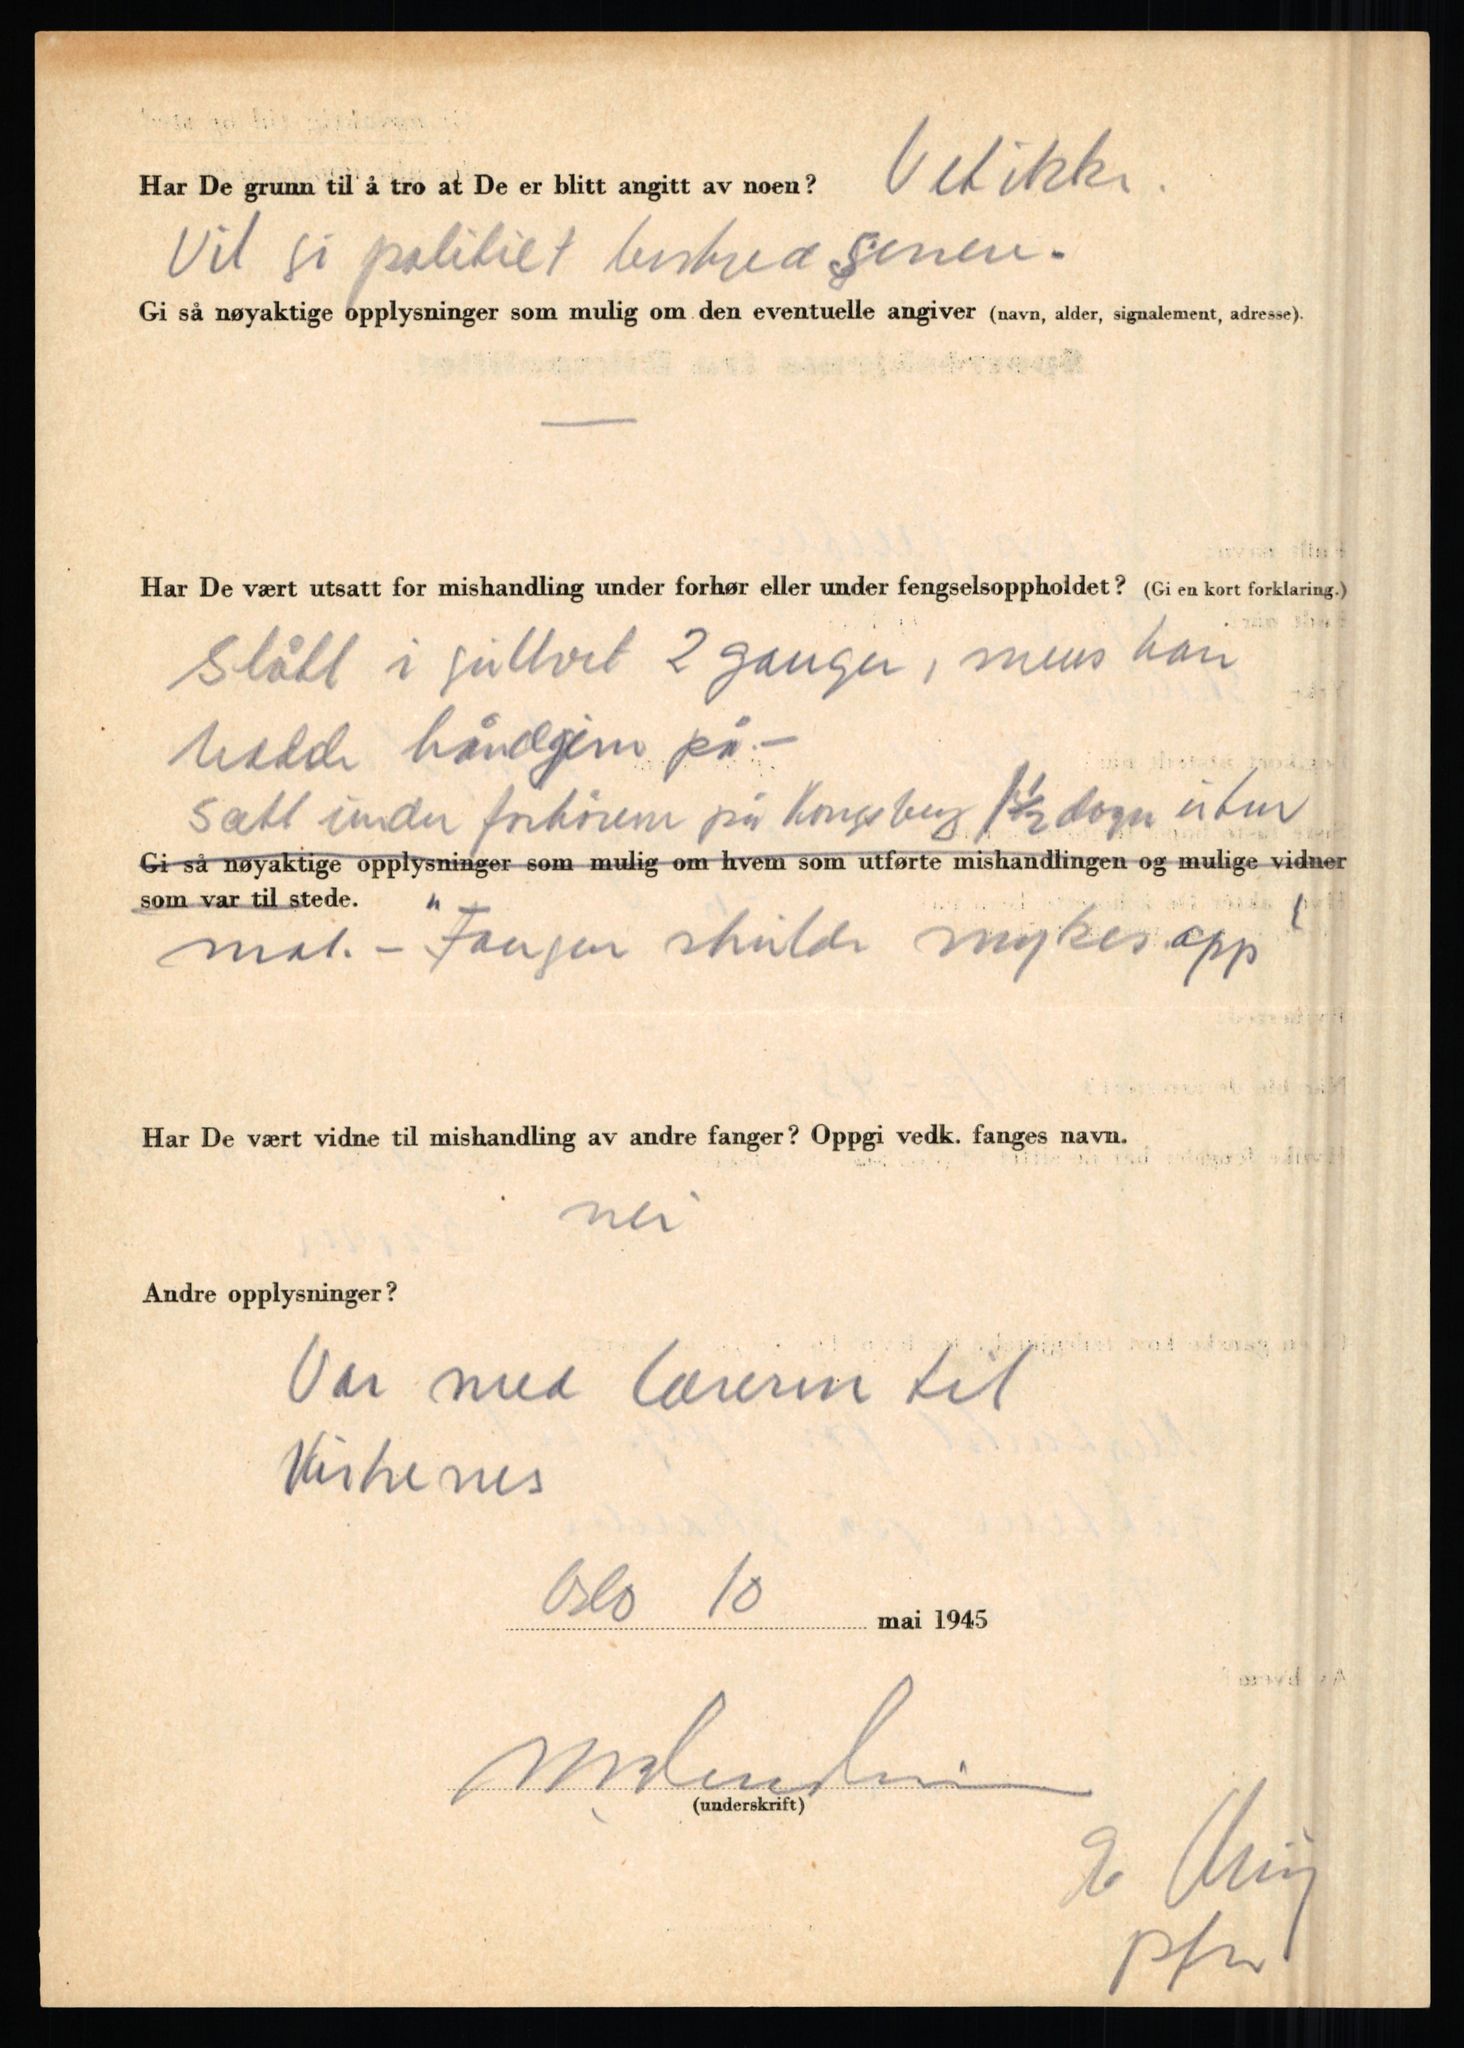 Har De grunn til å tro at De er blitt angitt av noen? Vet ikke.
Vil gi politiet beskjed senere.
Gi så nøyaktige opplysninger som mulig om den eventuelle angiver (navn, alder, signalement, adresse).
—
Har De vært utsatt for mishandling under forhør eller under fengselsoppholdet? (Gi en kort forklaring.)
Slått i gulvet 2 ganger, mens han
hadde håndjern på.—
Satt under forhørene på Kongsberg 1½ døgn uten
Gi så nøyaktige opplysninger som mulig om hvem som utførte mishandlingen og mulige vidner
som var til stede.
mat. — "Fangen skulde mykes opp"
Har De vært vidne til mishandling av andre fanger? Oppgi vedk. fanges navn.
nei
Andre opplysninger?
Var med lærerne til
Kirkenes
Oslo 10 mai 1945
(underskrift)